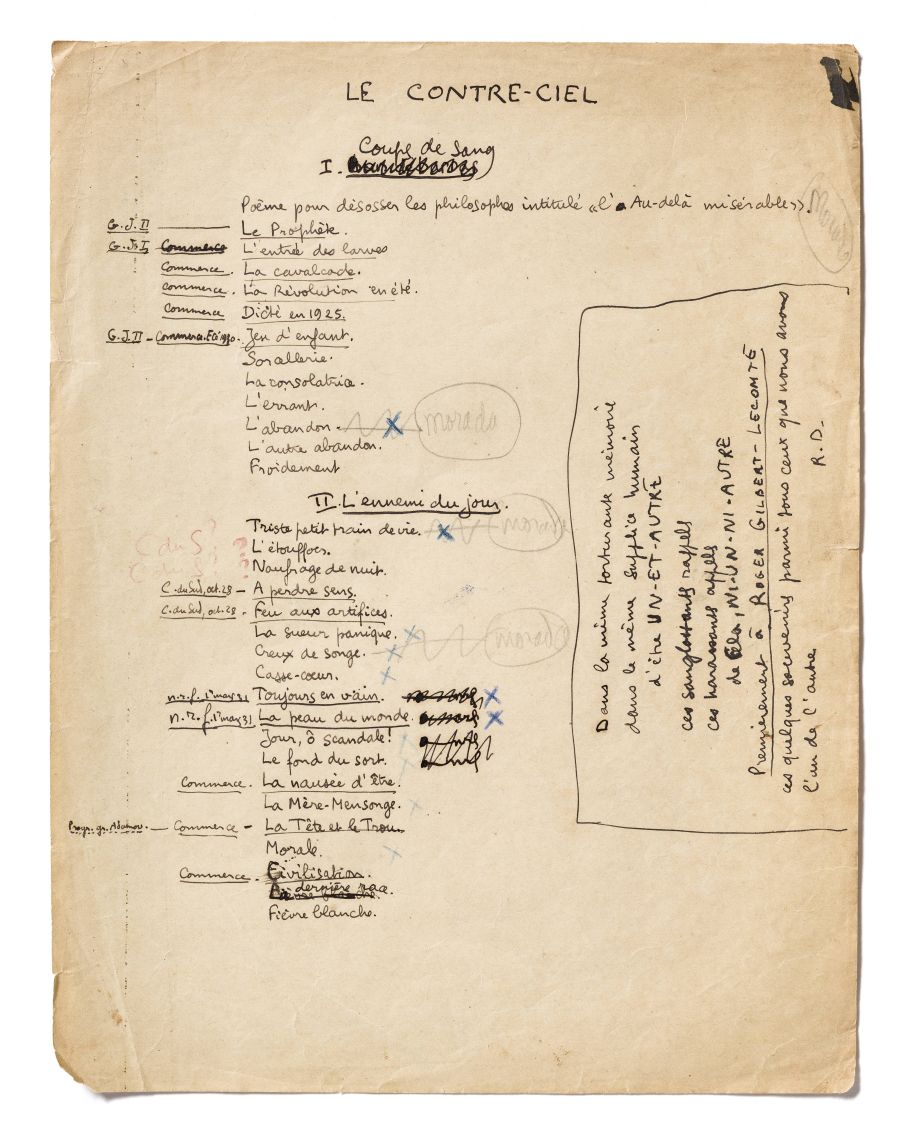 LE CONTRE-CIEL
Coups de sang
I.
Poème pour désosser les philosophes intitulé «l'Au-delà misérable».
G.J.II Le Prophète.
G.J.I Commerce L'entrée des larves
Commerce. La cavalcade.
Commerce. La Révolution en été.
Commerce Dicté en 1925.
G.J.II - Commerce. Eté 1930. Jeu d'enfant.
Sorcellerie.
La consolatrice.
L'errant.
L'abandon. morada
L'autre abandon.
Froidement
II. L'ennemi du jour.
Triste petit train de vie.
C du S, ? L'étouffoir.
C du S, ? Naufrage de nuit.
C. du Sud, oct. 28 - A perdre sens.
C. du Sud, oct. 28 - Feu aux artifices.
La sueur panique.
Creux de songe.
Casse-cœur.
n.r.f. 1er mars 31 Toujours en vain.
n.r.f. 1er mars 31 La peau du monde.
Jour, ô scandale!
Le fond du sort.
Commerce. La nausée d'être.
La Mère-Mensonge.
Progr. gr. Adamov. - Commerce - La Tête et le Trou
Morale.
Commerce. Civilisation.
La dernière race.
Fièvre blanche.
Dans la même torturante mémoire
dans le même supplice humain
d'être UN-ET-AUTRE
ces sanglotants rappels
ces harassants appels
de NI-UN-NI-AUTRE
Premièrement à ROGER GILBERT-LECOMTE
ces quelques souvenirs parmi tous ceux que nous avons
l'un de l'autre
R.D.